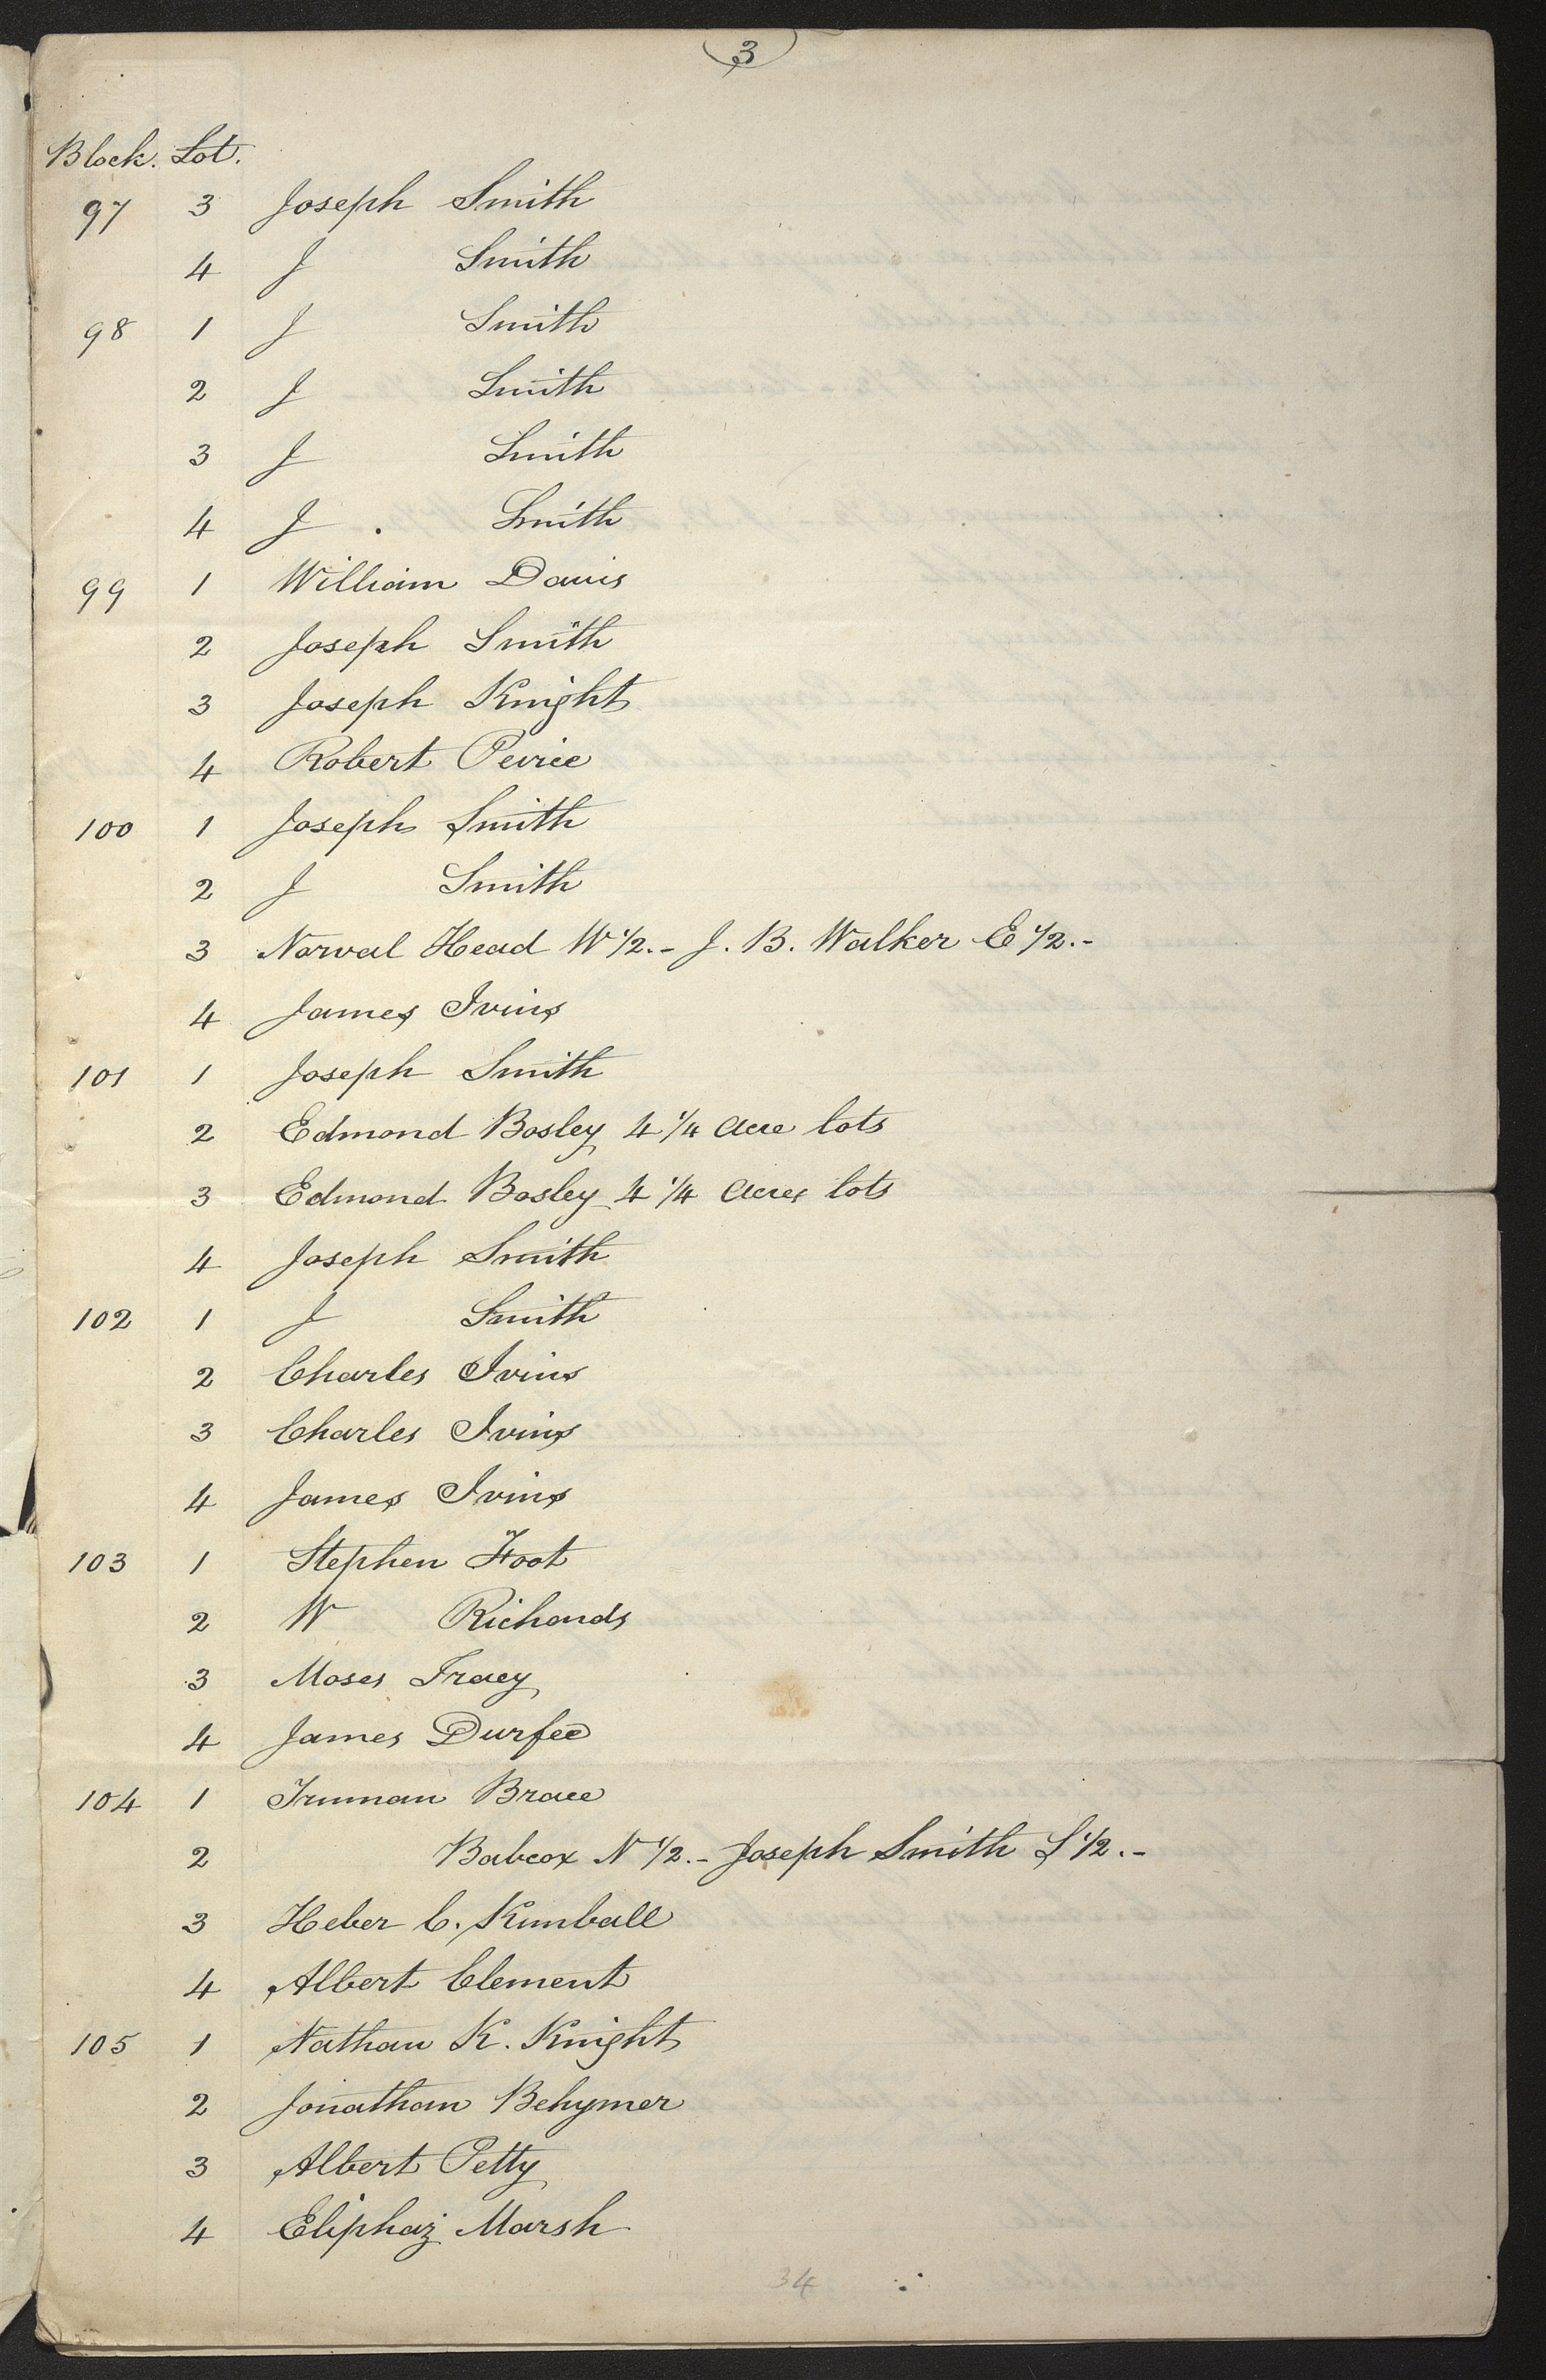 3
Block. Lot.
97 3 Joseph Smith
4 J Smith
98 1 J Smith
2 J Smith
3 J Smith
4 J . Smith
99 1 William Davis
2 Joseph Smith
3 Joseph Knight
4 Robert Peirce
100 1 Joseph Smith
2 J Smith
3 Norval Head W 1/2.- J. B. Walker E 1/2.-
4 James Ivins
101 1 Joseph Smith
2 Edmond Bosley 4 1/4 Acre lots
3 Edmond Bosley 4 1/4 Acres lots
4 Joseph Smith
102 1 J Smith
2 Charles Ivins
3 Charles Ivins
4 James Ivins
103 1 Stephen Foot
2 W Richards
3 Moses Tracy
4 James Durfee
104 1 Truman Brace
2 Babcox N 1/2.- Joseph Smith S 1/2.-
3 Heber C. Kimball
4 Albert Clement
105 1 Nathan K. Knight
2 Jonathan Behymer
3 Albert Petty
4 Eliphaz Marsh
34